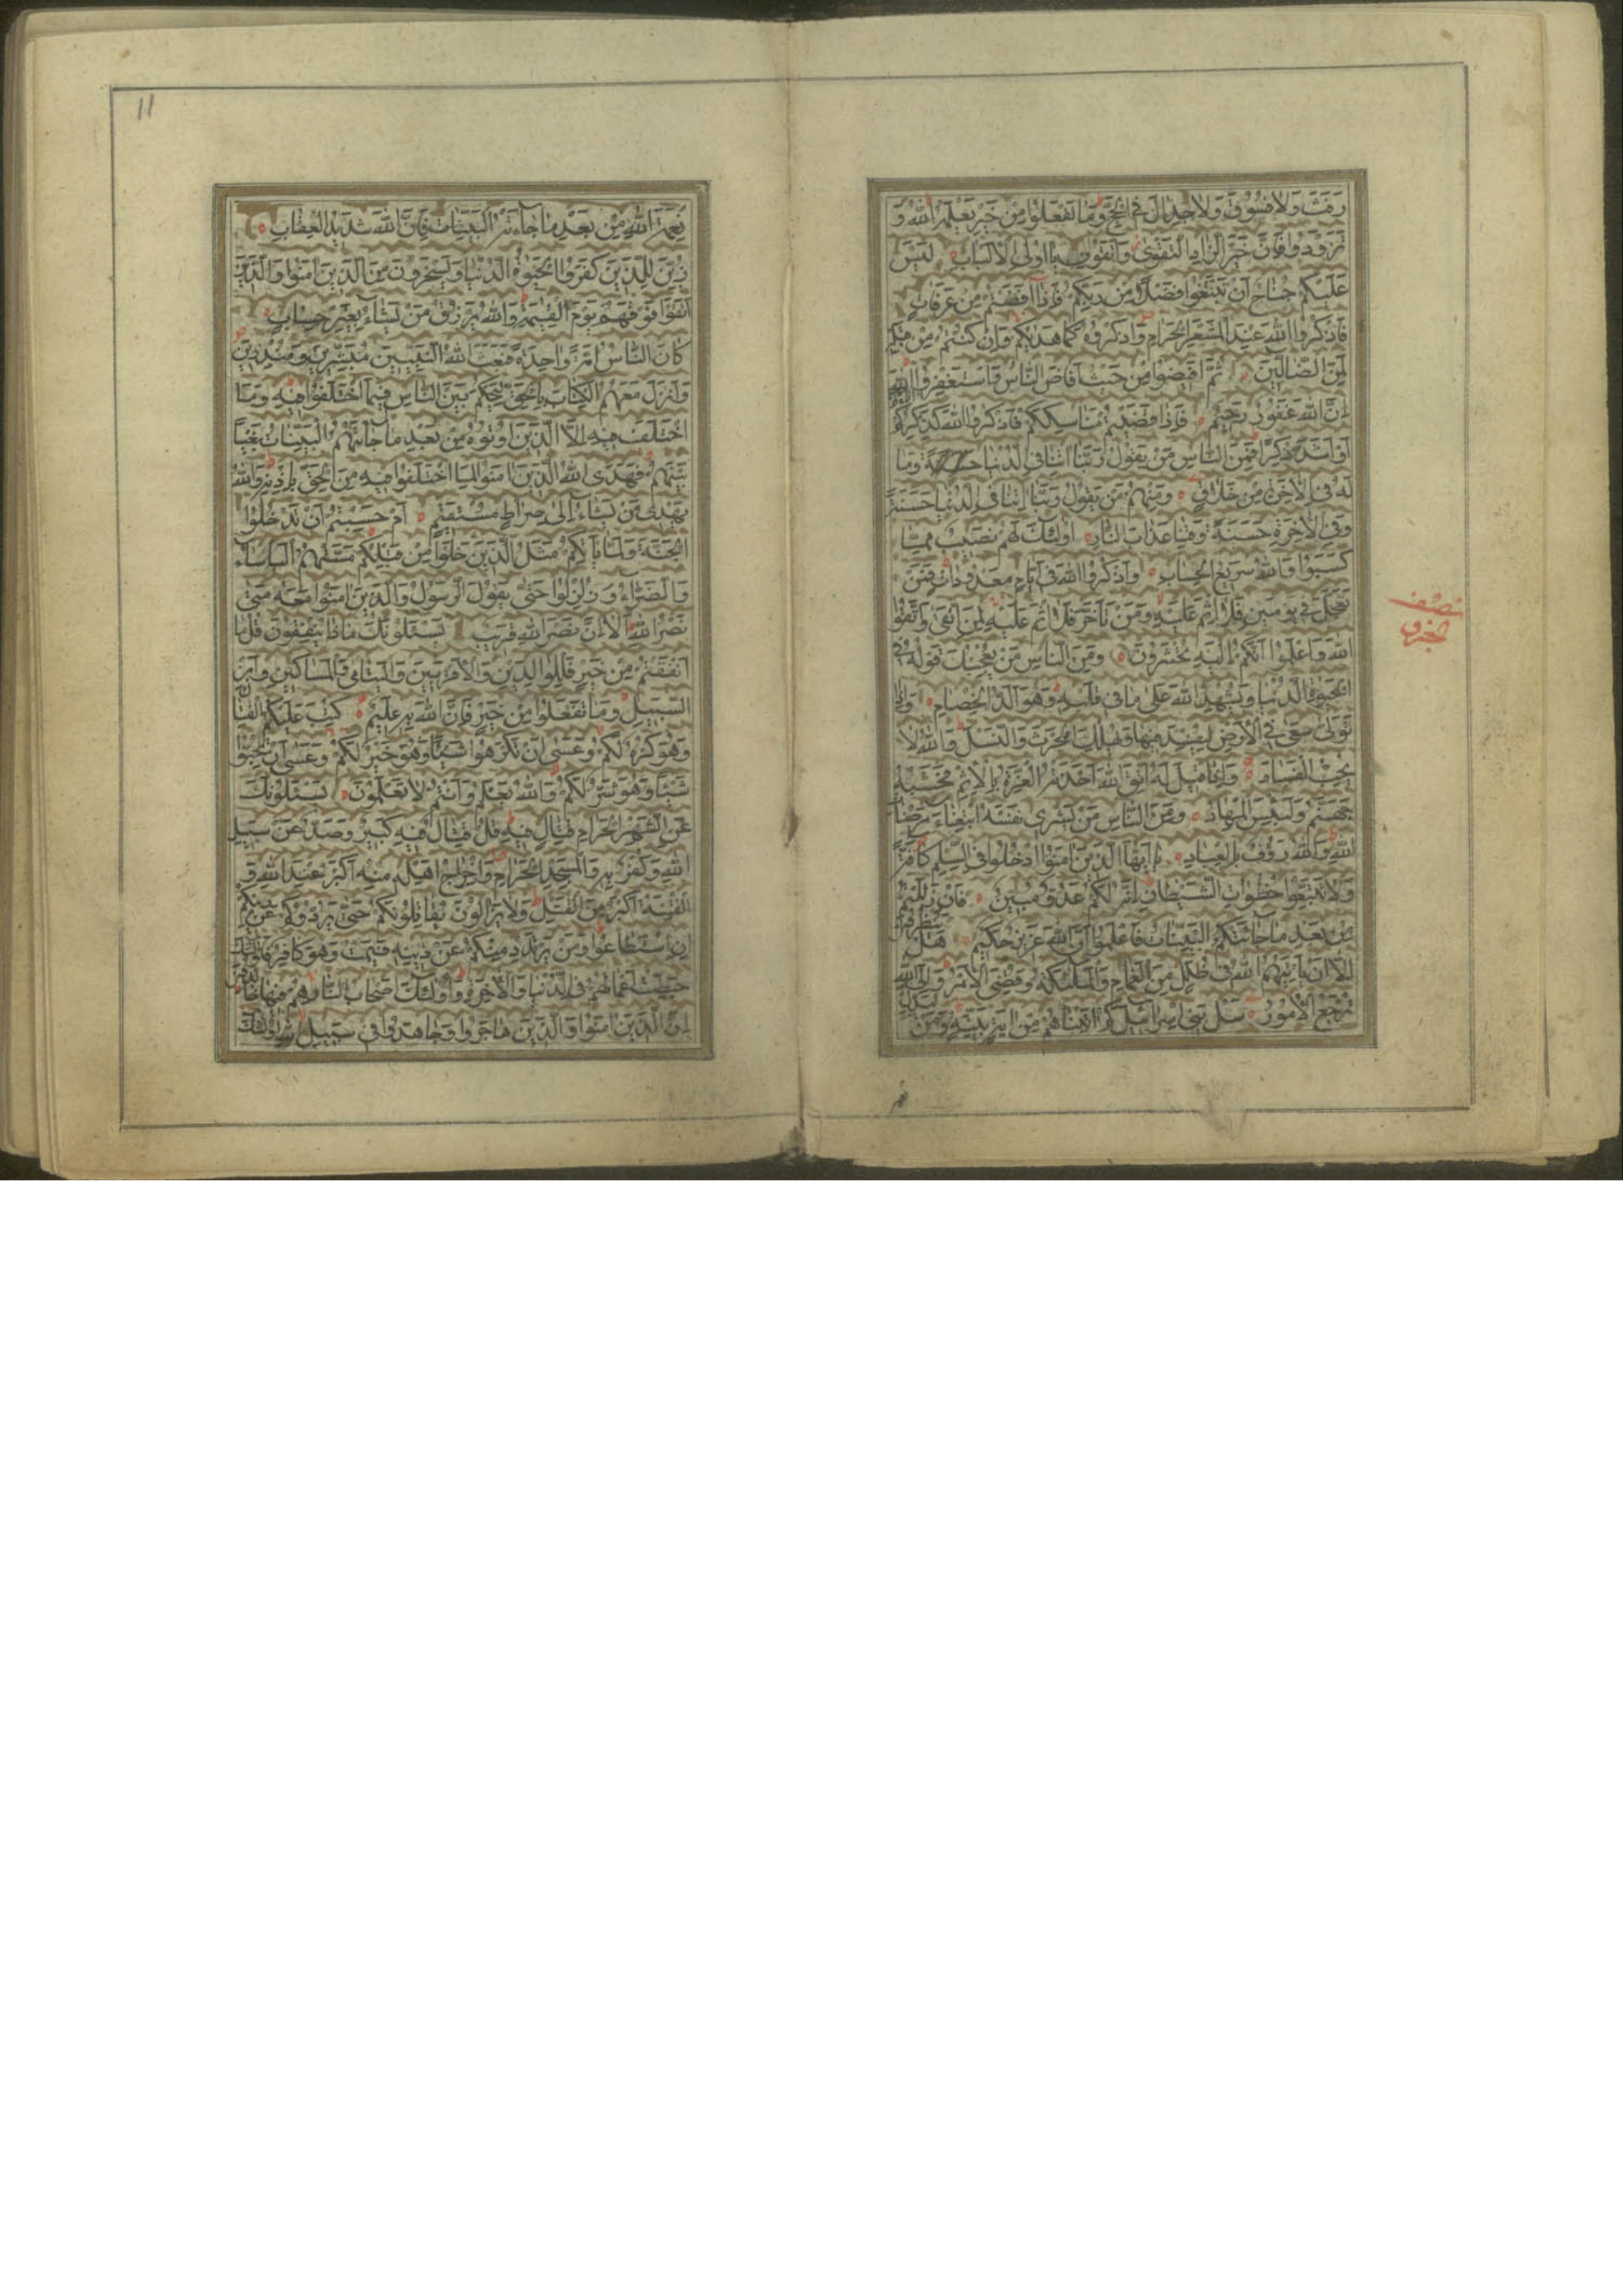 رَفَثَ وَلَا فُسُوقَ وَلَا جِدَالَ فِي الْحَجِّ وَمَا تَفْعَلُوا مِنْ خَيْرٍ يَعْلَمْهُ اللّٰهُ وَ
تَزَوَّدُوا فَإِنَّ خَيْرَ الزَّادِ التَّقْوَى وَاتَّقُونِ يَا أُولِي الْأَلْبَابِ لَيْسَ
عَلَيْكُمْ جُنَاحٌ أَنْ تَبْتَغُوا فَضْلًا مِنْ رَبِّكُمْ فَإِذَا أَفَضْتُمْ مِنْ عَرَفَاتٍ
فَاذْكُرُوا اللّٰهَ عِنْدَ الْمَشْعَرِ الْحَرَامِ وَاذْكُرُوهُ كَمَا هَدٰيكُمْ وَإِنْ كُنْتُمْ مِنْ قَبْلِهِ
لَمِنَ الضَّالِّينَ ثُمَّ أَفِيضُوا مِنْ حَيْثُ أَفَاضَ النَّاسُ وَاسْتَغْفِرُوا اللّٰهَ
إِنَّ اللّٰهَ غَفُورٌ رَحِيمٌ فَإِذَا قَضَيْتُمْ مَنَاسِكَكُمْ فَاذْكُرُوا اللّٰهَ كَذِكْرِكُمْ
أَوْ أَشَدَّ ذِكْرًا فَمِنَ النَّاسِ مَنْ يَقُولُ رَبَّنَا اٰتِنَا فِي الدُّنْيَا وَمَا
لَهُ فِي الْاٰخِرَةِ مِنْ خَلَاقٍ وَمِنْهُمْ مَنْ يَقُولُ رَبَّنَا اٰتِنَا فِي الدُّنْيَا حَسَنَةً
وَفِي الْاٰخِرَةِ حَسَنَةً وَقِنَا عَذَابَ النَّارِ أُولٰئِكَ لَهُمْ نَصِيبٌ مِمَّا
كَسَبُوا وَاللّٰهُ سَرِيعُ الْحِسَابِ وَاذْكُرُوا اللّٰهَ فِي أَيَّامٍ مَعْدُودَاتٍ فَمَنْ
تَعَجَّلَ فِي يَوْمَيْنِ فَلَا إِثْمَ عَلَيْهِ وَمَنْ تَأَخَّرَ فَلَا إِثْمَ عَلَيْهِ لِمَنِ اتَّقَى وَاتَّقُوا
اللّٰهَ وَاعْلَمُوا أَنَّكُمْ إِلَيْهِ تُحْشَرُونَ وَمِنَ النَّاسِ مَنْ يُعْجِبُكَ قَوْلُهُ فِي
الْحَيٰوةِ الدُّنْيَا وَيُشْهِدُ اللّٰهَ عَلٰى مَا فِي قَلْبِهِ وَهُوَ أَلَدُّ الْخِصَامِ وَإِذَا
تَوَلّٰى سَعٰى فِي الْأَرْضِ لِيُفْسِدَ فِيهَا وَيُهْلِكَ الْحَرْثَ وَالنَّسْلَ وَاللّٰهُ لَا
يُحِبُّ الْفَسَادَ وَإِذَا قِيلَ لَهُ اتَّقِ اللّٰهَ أَخَذَتْهُ الْعِزَّةُ بِالْإِثْمِ فَحَسْبُهُ
جَهَنَّمُ وَلَبِئْسَ الْمِهَادُ وَمِنَ النَّاسِ مَنْ يَشْرِي نَفْسَهُ ابْتِغَاءَ مَرْضَاتِ
اللّٰهِ وَاللّٰهُ رَؤُفٌ بِالْعِبَادِ يَا أَيُّهَا الَّذِينَ اٰمَنُوا ادْخُلُوا فِي السِّلْمِ كَافَّةً
وَلَا تَتَّبِعُوا خُطُوَاتِ الشَّيْطَانِ إِنَّهُ لَكُمْ عَدُوٌّ مُبِينٌ فَإِنْ زَلَلْتُمْ
مِنْ بَعْدِ مَا جَاءَتْكُمُ الْبَيِّنَاتُ فَاعْلَمُوا أَنَّ اللّٰهَ عَزِيزٌ حَكِيمٌ هَلْ يَنْظُرُونَ
إِلَّا أَنْ يَأْتِيَهُمُ اللّٰهُ فِي ظُلَلٍ مِنَ الْغَمَامِ وَالْمَلٰئِكَةُ وَقُضِيَ الْأَمْرُ وَإِلَى اللّٰهِ
تُرْجَعُ الْأُمُورُ سَلْ بَنِي إِسْرَائِيلَ كَمْ اٰتَيْنَاهُمْ مِنْ اٰيَةٍ بَيِّنَةٍ وَمَنْ يُبَدِّلْ
نصف
الجزو
11
نِعْمَةَ اللّٰهِ مِنْ بَعْدِ مَا جَاءَتْهُ الْبَيِّنَاتُ فَإِنَّ اللّٰهَ شَدِيدُ الْعِقَابِ
زُيِّنَ لِلَّذِينَ كَفَرُوا الْحَيٰوةُ الدُّنْيَا وَيَسْخَرُونَ مِنَ الَّذِينَ اٰمَنُوا وَالَّذِينَ
اتَّقَوْا فَوْقَهُمْ يَوْمَ الْقِيٰمَةِ وَاللّٰهُ يَرْزُقُ مَنْ يَشَاءُ بِغَيْرِ حِسَابٍ
كَانَ النَّاسُ أُمَّةً وَاحِدَةً فَبَعَثَ اللّٰهُ النَّبِيِّينَ مُبَشِّرِينَ وَمُنْذِرِينَ
وَأَنْزَلَ مَعَهُمُ الْكِتَابَ بِالْحَقِّ لِيَحْكُمَ بَيْنَ النَّاسِ فِيمَا اخْتَلَفُوا فِيهِ وَمَا
اخْتَلَفَ فِيهِ إِلَّا الَّذِينَ أُوتُوهُ مِنْ بَعْدِ مَا جَاءَتْهُمُ الْبَيِّنَاتُ بَغْيًا
بَيْنَهُمْ فَهَدَى اللّٰهُ الَّذِينَ اٰمَنُوا لِمَا اخْتَلَفُوا فِيهِ مِنَ الْحَقِّ بِإِذْنِهِ وَاللّٰهُ
يَهْدِي مَنْ يَشَاءُ إِلٰى صِرَاطٍ مُسْتَقِيمٍ أَمْ حَسِبْتُمْ أَنْ تَدْخُلُوا
الْجَنَّةَ وَلَمَّا يَأْتِكُمْ مَثَلُ الَّذِينَ خَلَوْا مِنْ قَبْلِكُمْ مَسَّتْهُمُ الْبَأْسَاءُ
وَالضَّرَّاءُ وَزُلْزِلُوا حَتّٰى يَقُولَ الرَّسُولُ وَالَّذِينَ اٰمَنُوا مَعَهُ مَتٰى
نَصْرُ اللّٰهِ أَلَا إِنَّ نَصْرَ اللّٰهِ قَرِيبٌ يَسْئَلُونَكَ مَاذَا يُنْفِقُونَ قُلْ مَا
أَنْفَقْتُمْ مِنْ خَيْرٍ فَلِلْوَالِدَيْنِ وَالْأَقْرَبِينَ وَالْيَتَامٰى وَالْمَسَاكِينِ وَابْنِ
السَّبِيلِ وَمَا تَفْعَلُوا مِنْ خَيْرٍ فَإِنَّ اللّٰهَ بِهِ عَلِيمٌ كُتِبَ عَلَيْكُمُ الْقِتَالُ
وَهُوَ كُرْهٌ لَكُمْ وَعَسٰى أَنْ تَكْرَهُوا شَيْئًا وَهُوَ خَيْرٌ لَكُمْ وَعَسٰى أَنْ تُحِبُّوا
شَيْئًا وَهُوَ شَرٌّ لَكُمْ وَاللّٰهُ يَعْلَمُ وَأَنْتُمْ لَا تَعْلَمُونَ يَسْئَلُونَكَ
عَنِ الشَّهْرِ الْحَرَامِ قِتَالٍ فِيهِ قُلْ قِتَالٌ فِيهِ كَبِيرٌ وَصَدٌّ عَنْ سَبِيلِ
اللّٰهِ وَكُفْرٌ بِهِ وَالْمَسْجِدِ الْحَرَامِ وَإِخْرَاجُ أَهْلِهِ مِنْهُ أَكْبَرُ عِنْدَ اللّٰهِ وَ
الْفِتْنَةُ أَكْبَرُ مِنَ الْقَتْلِ وَلَا يَزَالُونَ يُقَاتِلُونَكُمْ حَتّٰى يَرُدُّوكُمْ عَنْ دِينِكُمْ
إِنِ اسْتَطَاعُوا وَمَنْ يَرْتَدِدْ مِنْكُمْ عَنْ دِينِهِ فَيَمُتْ وَهُوَ كَافِرٌ فَأُولٰئِكَ
حَبِطَتْ أَعْمَالُهُمْ فِي الدُّنْيَا وَالْاٰخِرَةِ وَأُولٰئِكَ أَصْحَابُ النَّارِ هُمْ فِيهَا خَالِدُونَ
إِنَّ الَّذِينَ اٰمَنُوا وَالَّذِينَ هَاجَرُوا وَجَاهَدُوا فِي سَبِيلِ اللّٰهِ أُولٰئِكَ